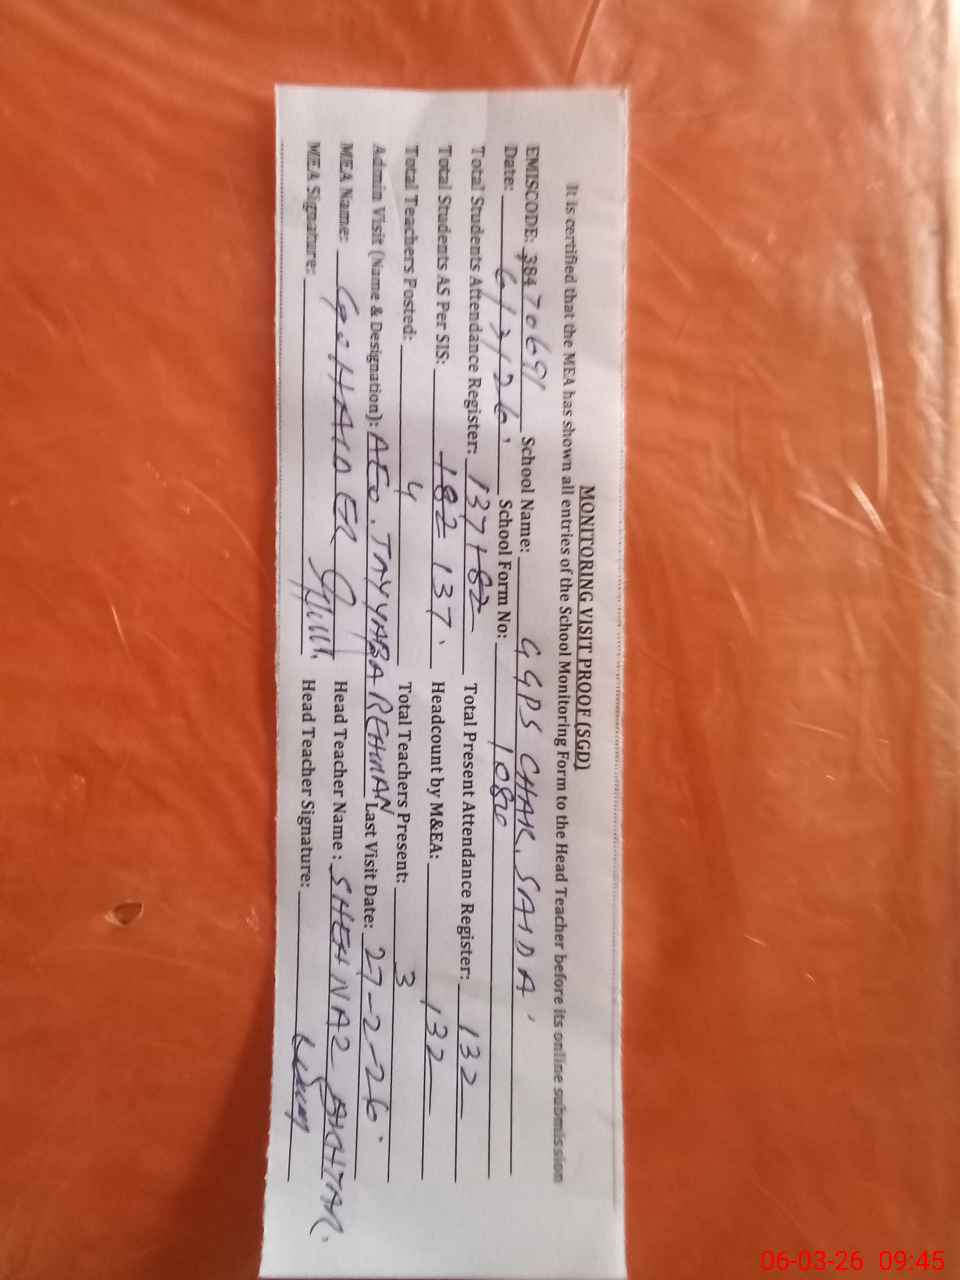 MONITORING VISIT PROOF (SGD)
It is certified that the MEA has shown all entries of the School Monitoring Form to the Head Teacher before its online submission
EMISCODE: 38470691 School Name: GGPS CHAK. SAIDA
Date: 6/3/26 School Form No: 1080
Total Students Attendance Register: 137+82 Total Present Attendance Register: 132
Total Students AS Per SIS: 182 137 Headcount by M&EA: 132
Total Teachers Posted: 4 Total Teachers Present: 3
Admin Visit (Name & Designation): AEO. TAYYABA REHMAN Last Visit Date: 27-2-26
MEA Name: HAIDER Head Teacher Name: SHEHNAZ AKHTAR
MEA Signature: Head Teacher Signature:
06-03-26 09:45